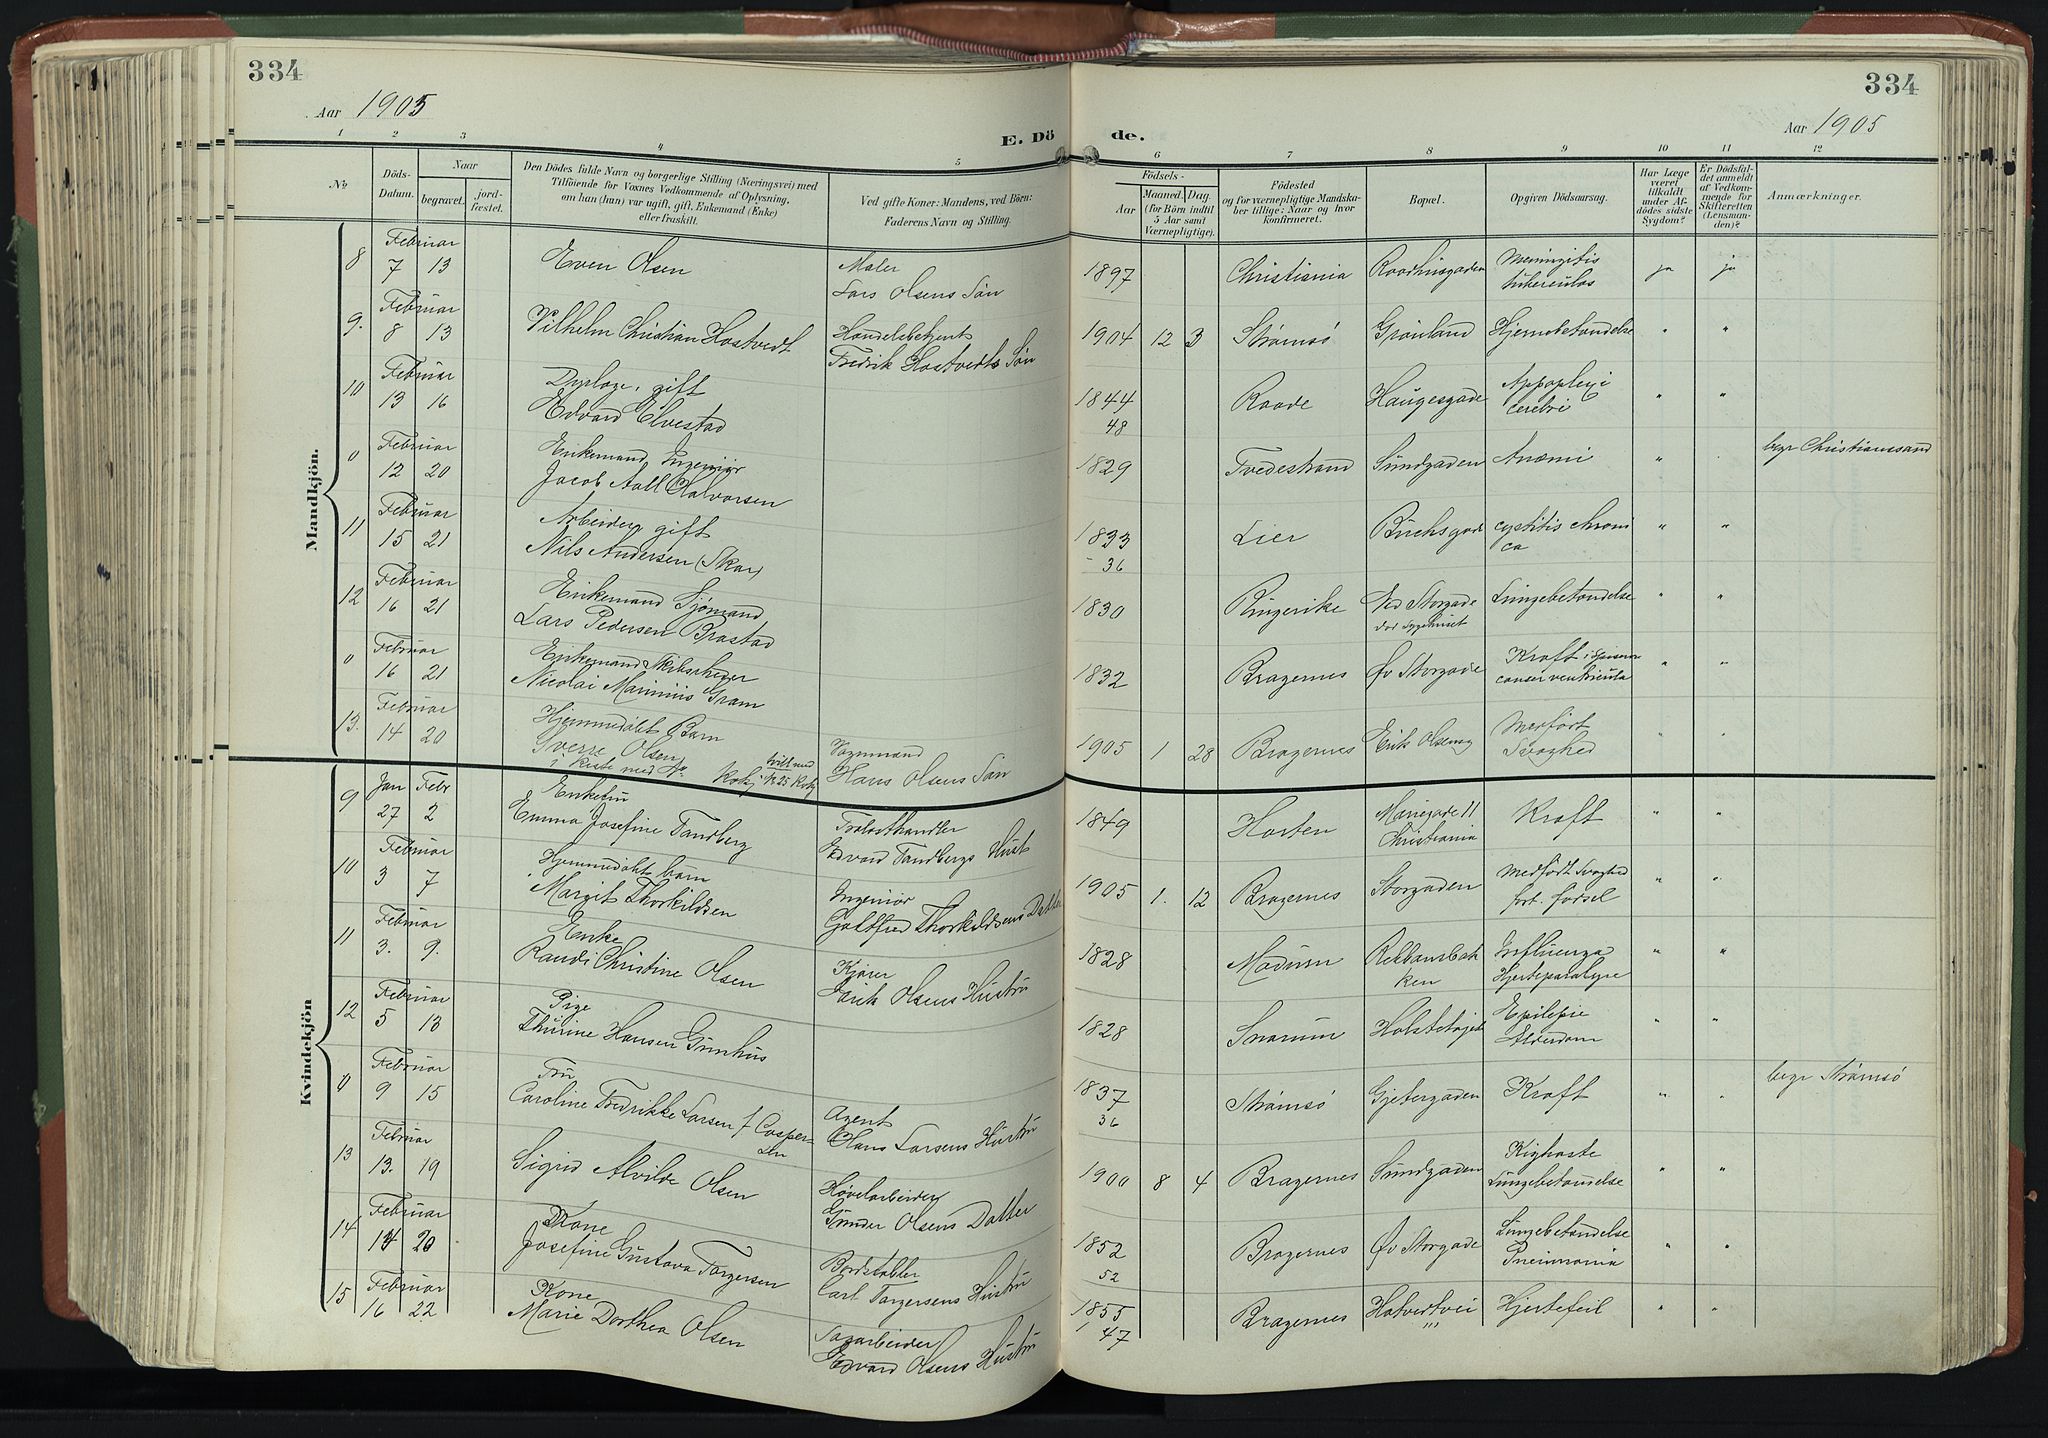 334
Aar 1905
E. Dö
1 2 3 4 5
No
Döds-
Datum.
Naar
begravet.
jord-
fæstet.
Den Dödes fulde Navn og borgerlige Stilling (Næringsvei) med
Tilföiende for Voxnes Vedkommende af Oplysning,
om han (hun) var ugift, gift, Enkemand (Enke)
eller fraskilt.
Ved gifte Koner: Mandens, ved Börn:
Faderens Navn og Stilling.
Mandkjön.
8 Februar 7 13 Even Olsen Maler
Lars Olsens Søn
9. Februar 8 13 Vilhelm Christian Hostvedt Handelsbetjent
Fredrik Hostvedts Søn
10 Februar 13 16 gift
Edvard Elvestad
0 Februar 12 20 Enkemand Ingeniør
Jacob Aall Halvorsen
11 Februar 15 21 Arbeider gift
Nils Andersen (Skar)
12 Februar 16 21 Enkemand Sjømand
Lars Pedersen Brastad
0 Februar 16 21 Enkemand Skibsrheder
Nicolai Marinius Gram
13. Februar 14 20 Hjemmedøbt Barn
Sverre Olsen
i kiste med
Vognmand
Hans Olsens Søn
Kvindekjön
9 Jan 27 Febr 2 Enkefru
Emma Josefine Tandberg
Trælasthandler
Edvard Tandbergs Hust
10 Februar 3 7 Hjemmedøbt barn
Margit Thorkildsen
Ingeniør
Gottfred Thorkildsens Datter
11 Februar 3. 9. Enke
Randi Christine Olsen
Kjører
Erik Olsens Hustru
12 Februar 5 13 Pige
Thurine Hansen Gunhus
0 Februar 9 15 Fru
Caroline Fredrikke Larsen f Casper-
sen
Agent
Hans Larsens Hustru
13 Februar 13. 19 Sigrid Alvilde Olsen Høvelarbeider
Gunder Olsens Datter
14 Februar 14 20 Kone
Josefine Gustava Torgersen
Bordstabler
Carl Torgersens Hustru
15 Februar 16 22 Kone
Marie Dorthea Olsen
Sagarbeider
Edvard Olsens Hustru
334
Aar 1905
de.
6 7 8 9 10 11 12
Födsels-
Aar
Maaned. Dag.
(for Börn indtil
5 Aar samt
Værnepligtige).
Födested
og for værnepligtige Mandska-
ber tillige: Naar og hvor
konfirmeret.
Bopæl.
Opgiven Dödsaarsag.
Har Læge
været
tilkaldt
under Af-
dödes sidste
Sygdom?
Er Dödsfal-
det anmeldt
af Vedkom-
mende for
Skifteretten
(Lensman-
den)?
Anmærkninger.
1897 Christiania Raadhusgaden Meningitis
tuberculos
ja ja
1904 12 3 Strømsø Grønland Hjernebetændelse " "
1844
48
Raade Haugesgade Appoplexi
cerebri
" "
1829 Tvedestrand Sundgaden Anæmi " begr Christianssand
1833
-36
Lier Buchsgade cystitis chroni
ca
" "
1830 Ringerike Ned Storgade
død Sygehuset
Lungebetændelse " "
1832 Bragernes Øv Storgade Kræft
" "
1905 1 28 Bragernes Medfødt
Svaghed
" "
1849 Horten Mariegade 11
Christiania
Kræft " "
1905 1. 12 Bragernes Storgaden Medfødt Svaghed
fort. fødsel
" "
1828 Modum Rebbansbak
ken
Influenza
Hjerteparalyse
" "
1828 Snarum Epilepsie
Alderdom
" "
1837
36
Strømsø Gjetergaden Kræft " " begr Strømsø
1900 8 4 Bragernes Sundgaden Kighoste
Lungebetændelse
" "
1852
52
Bragernes Øv Storgade Lungebetændelse
Pneumonia
" "
1855
47
Bragernes Hotvedtvei Hjertefeil " "